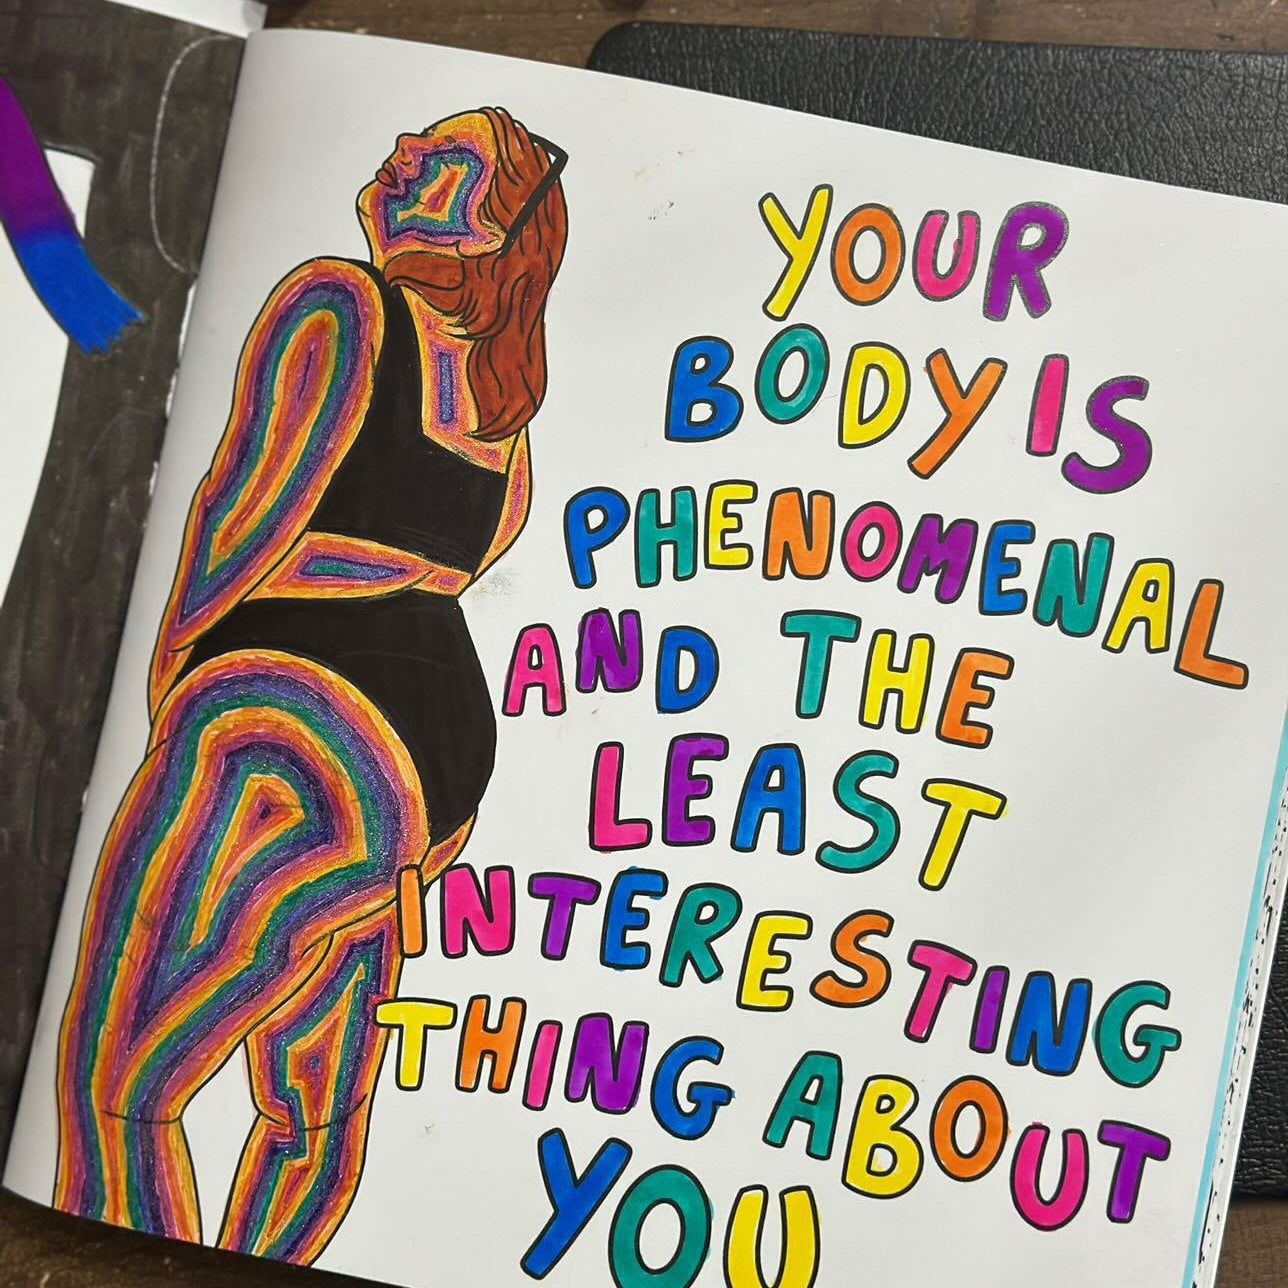 YOUR
BODY IS
PHENOMENAL
AND THE
LEAST
INTERESTING
THING ABOUT
YOU